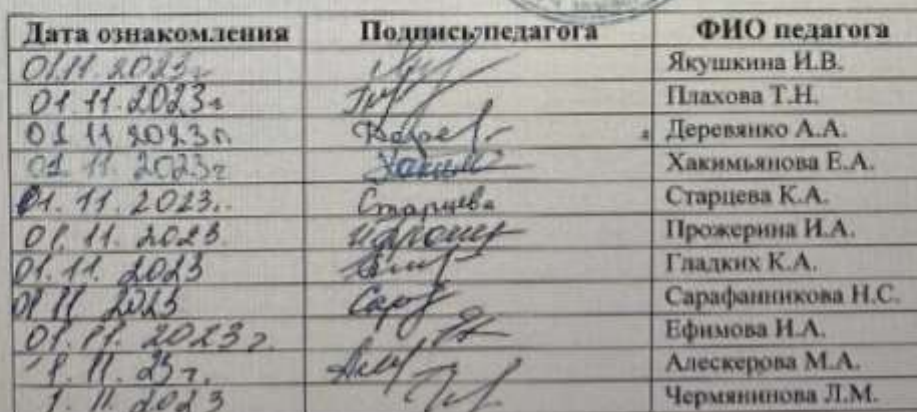 Дата ознакомления Подпись педагога ФИО педагога
01.11.2023г Якушкина И.В.
01.11.2023г Плахова Т.Н.
01 11 2023г. Дерев Деревянко А.А.
01.11.2023г Хаким Хакимьянова Е.А.
01.11.2023.. Старцева Старцева К.А.
01.11.2023. Прожерина И.А.
01.11.2023 Гладких К.А.
01 11 2023 Сараф Сарафанникова Н.С.
01.11.2023г. Ефимова И.А.
1.11.23г. Алескерова М.А.
1.11.2023 Чермянинова Л.М.